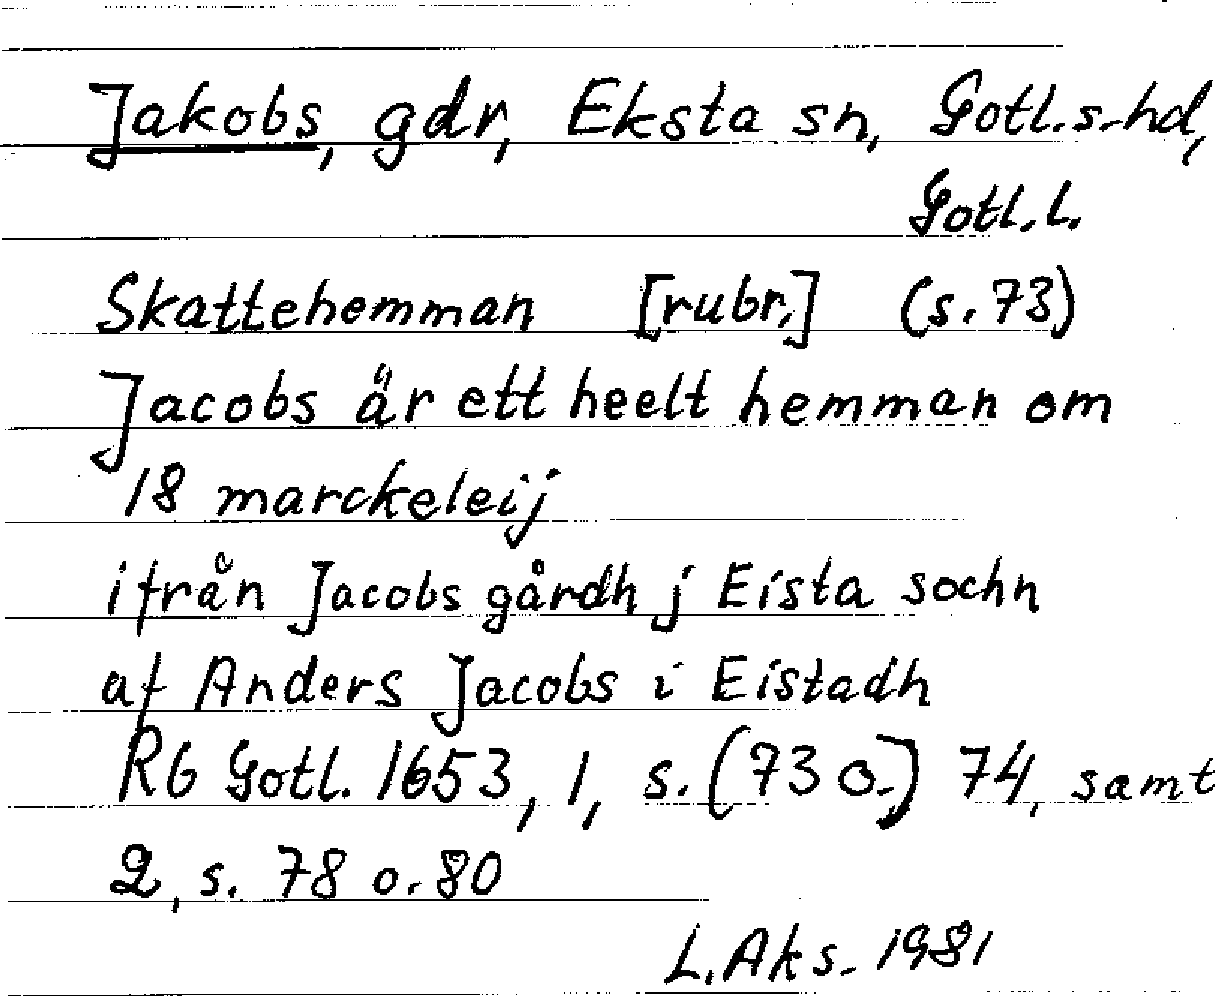 Jakobs, gdr, Eksta sn, Gotl.s.hd,
Gotl.l.
Skattehemman [rubr.] (s. 73)
Jacobs är ett heelt hemman om
18 marckeleij
ifrån Jacobs gårdh j Eista sochn
af Anders Jacobs i Eistadh
RG Gotl. 1653, 1, s. (73 o.) 74, samt
2, s. 78 o. 80
L. Aks. 1981